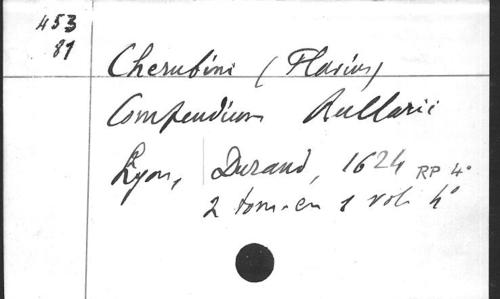 453
81
Cherubini (Flavius)
Compendium Bullarii
Lyon, Durand, 1624 RP 4°
2 tom. en 1 vol. 4°